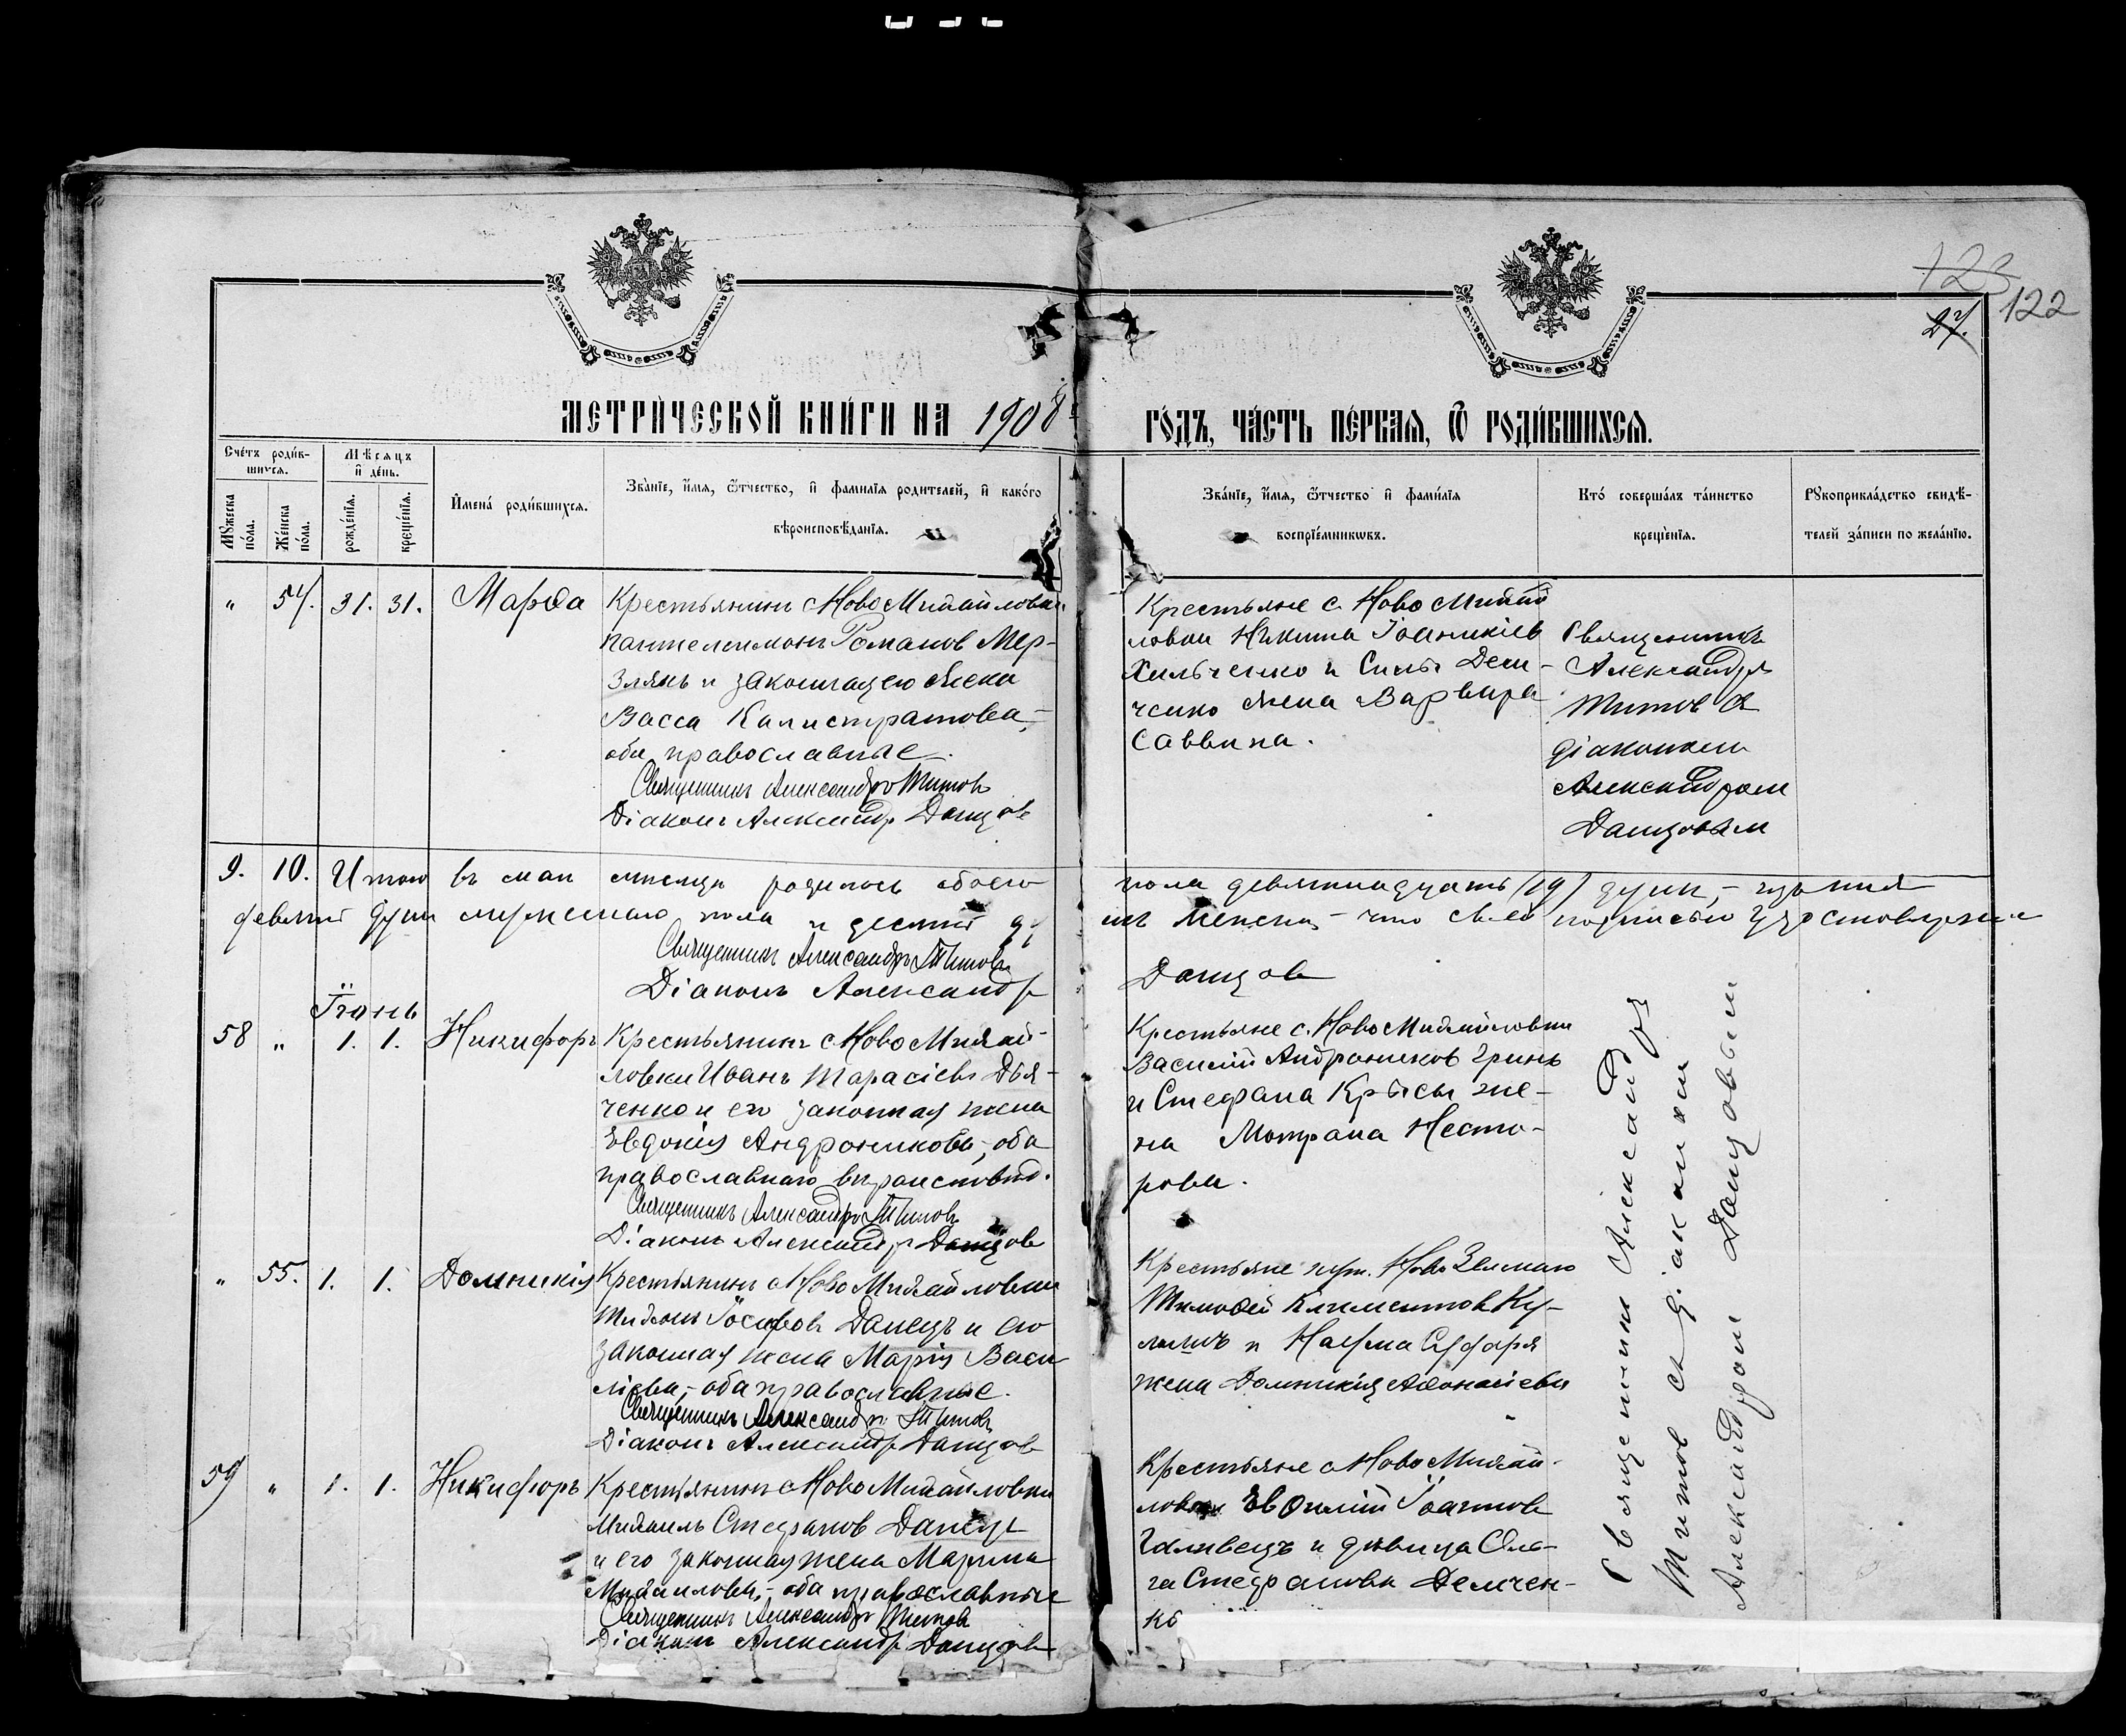 123
122
27.
МЕТРИЧЕСКОЙ КНИГИ НА 1908 ГОДЪ, ЧАСТЬ ПЕРВАЯ, Ѿ РОДИВШИХСЯ.
Счетъ родившихся.
Мѣсяцъ и день.
Мужеска пола.
Женска пола.
рожденія.
крещенія.
Имена родившихся.
Званіе, имя, ѿтчество, и фамилія родителей, и какого
вѣроисповѣданія.
Званіе, имя, ѿтчество и фамилія
воспріемникωвъ.
Кто совершалъ таинство
крещенія.
Рукоприкладство свидѣ-
телей записи по желанію.
" 54. 31. 31. Марѳа
Крестьянинъ с Ново Михайловки
Пантелеимонъ Романов Мер-
злякъ и законная его жена
Васса Калистратова,
оба православные.
Священникъ Александръ Титовъ
Діаконъ Александр Данцов
Крестьяне с. Ново Михай
ловки Никита Іоанникіев
Хильченко и Силы Дем-
ченко жена Варвара
Саввина.
Священникъ
Александръ
Титов съ
діакономъ
Александром
Данцовым
9. 10. Итого въ мае месяце родилось обоего пола девятнадцать (19) душ,
девять душ мужескаго пола и десять женска, что своею подписью удостоверяем
Священникъ Александръ Титовъ
Діаконъ Александр Данцов
Іюнь
58 " 1. 1. Никифоръ
Крестьянинъ с Ново Михай-
ловки Иванъ Тарасіевъ Дья-
ченко и его законная жена
Евдокія Андроникова, оба
православнаго вероисповед.
Священникъ Александръ Титовъ
Діаконъ Александр Данцов
Крестьяне с. Ново Михайловки
Василій Андроников Гринь
и Стефана Крысы же-
на Матрона Несто-
рова.
" 55. 1. 1. Домникія
Крестьянинъ с Ново Михайловки
Тихонъ Іосифовъ Данецъ и его
законная жена Марія Васи
ліева, оба православные.
Священникъ Александръ Титовъ
Діаконъ Александр Данцов
Крестьяне хут. Ново
Тимоѳей Климентов Ку-
и Наума
жена Домникія Аѳонасіева
59 " 1. 1. Никифоръ
Крестьянинъ с Ново Михайловки
Михаилъ Стефанов Данецъ
и его законная жена Марина
Михаилова, оба православные
Священникъ Александръ Титовъ
Діаконъ Александр Данцов
Крестьяне с Ново Михай-
ловки Евѳимій Іоаннов
Галивецъ и девица Оль-
га Стефанова Демчен-
ко
Священник Александр
Титов съ діаконом
Александром Данцовым